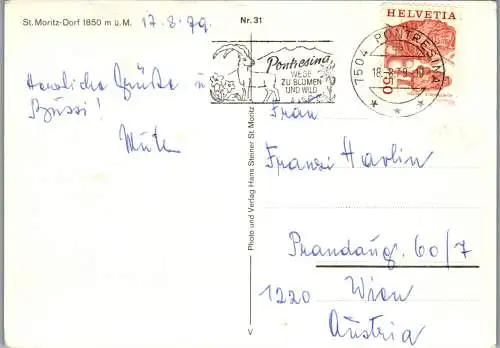 St. Moritz-Dorf 1850 m ü. M.
17.8.79.
Nr. 31
Herzliche Grüße u
Bussi!
Pontresina
WEGE
ZU BLUMEN
UND WILD
7504 PONTRESINA
18.-8.79.-10
HELVETIA
Photo und Verlag Hans Steiner St. Moritz
V
Frau
Franzi Havlin
Prandaug. 60/7
1220 Wien
Austria